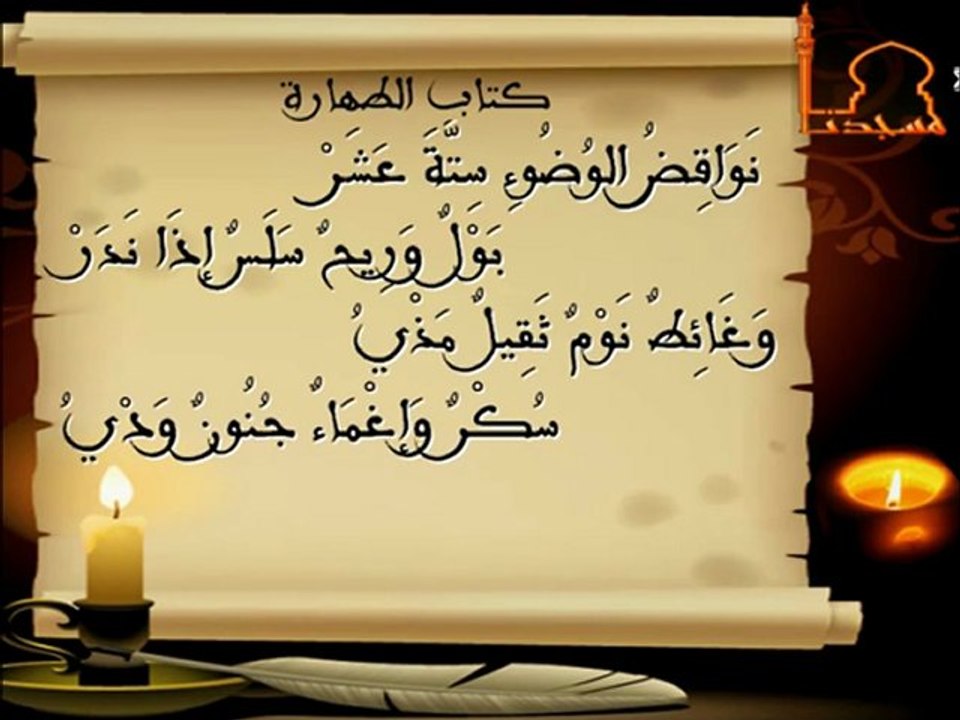 كتاب الطهارة
مسجدنا
نَوَاقِضُ الوُضُوءِ سِتَّةَ عَشَرْ
بَوْلٌ وَرِيحٌ سَلَسٌ إِذَا نَدَرْ
وَغَائِطٌ نَوْمٌ ثَقِيلٌ مَذْيُ
سُكْرٌ وَإِغْمَاءٌ جُنُونٌ وَدْيُ